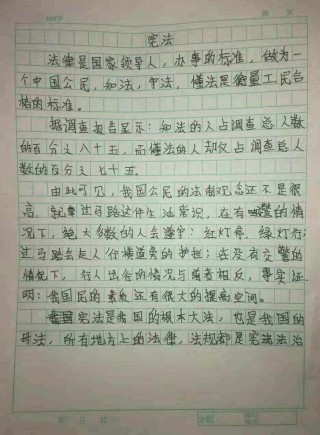 宪法
法律是国家领导人，办事的标准，做为一
个中国公民，知法，守法，懂法是衡量工民合
格的标准。
据调查报告显示：知法的人占调查总人数
的百分之八十五，而懂法的人却仅占调查总人
数的百分之七十五。
由此可见，我国公民的法制观念还不是很
高，就拿过马路这件生活常识，在有警的情
况下，绝大多数的人会遵守：红灯停，绿灯行
过马路会走人行横道旁的护栏；在没有交警的
情况下，行人出奇的情况与前者相反，事实证
明：我国民的素质还有很大的提高空间。
宪法是我国的根本大法，也是我国的
母法，所有地方上的法律，法规都是宪法法治
年 月 日